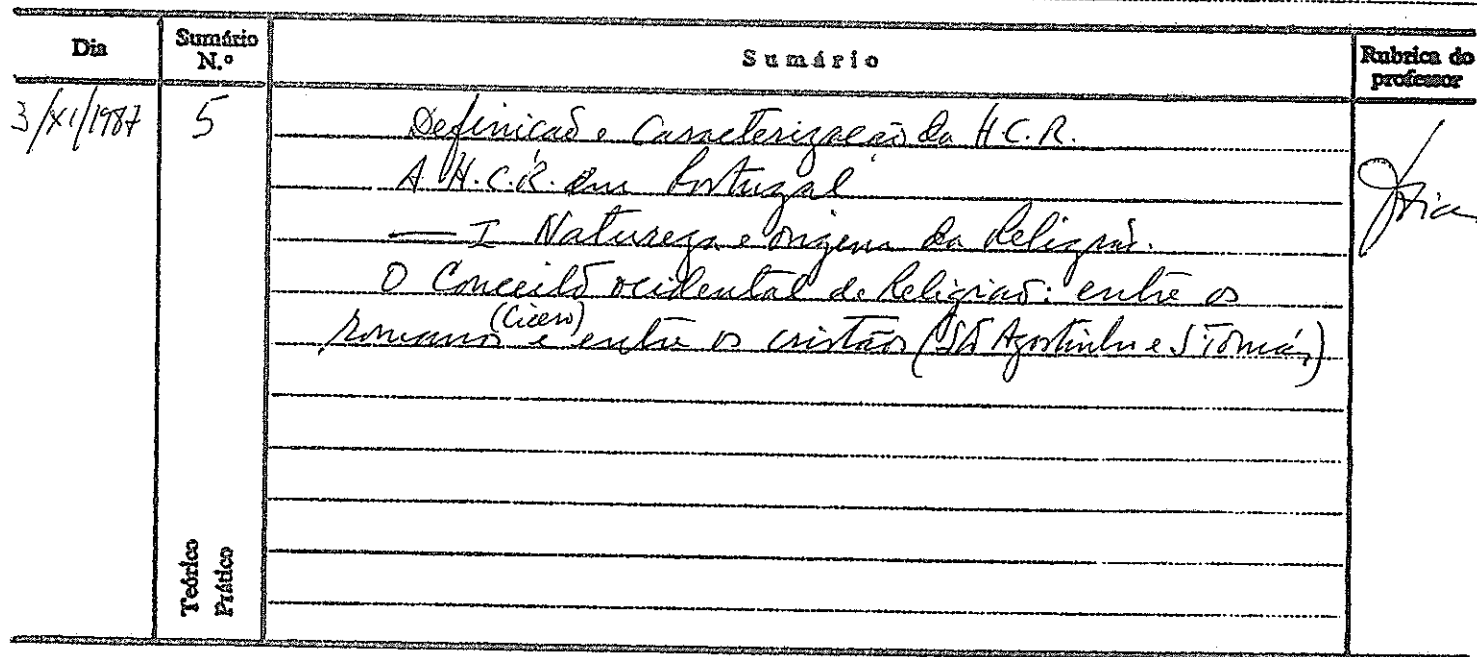 Dia Sumário N.º Sumário Rubrica do professor
3/XI/1987 5 Definição e Caracterização da H.C.R.
A H.C.R. em Portugal
— I Natureza e origem da Religião.
O Conceito ocidental de Religião: entre os
romanos (Cícero) e entre os cristãos (Stº Agostinho e S. Tomás)
Teórico
Prático